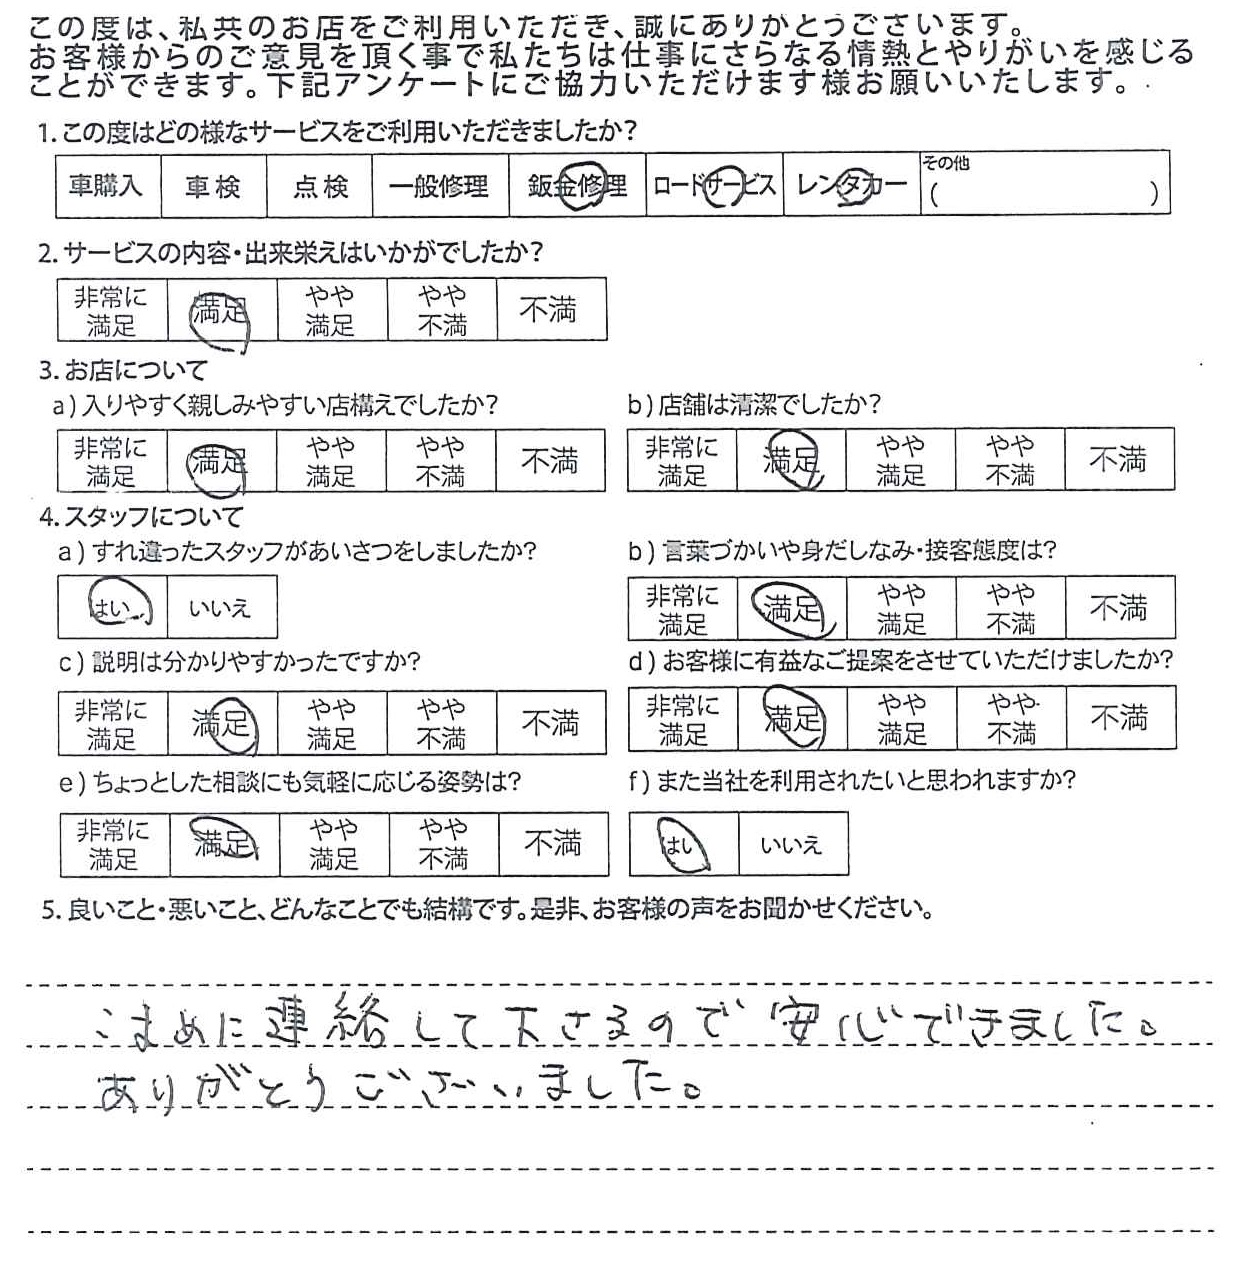 この度は、私共のお店をご利用いただき、誠にありがとうございます。
お客様からのご意見を頂く事で私たちは仕事にさらなる情熱とやりがいを感じる
ことができます。下記アンケートにご協力いただけます様お願いいたします。
1.この度はどの様なサービスをご利用いただきましたか?
車購入 車検 点検 一般修理 鈑金修理 ロードサービス レンタカー その他 ( )
2.サービスの内容・出来栄えはいかがでしたか?
非常に満足 満足 やや満足 やや不満 不満
3.お店について
a)入りやすく親しみやすい店構えでしたか? b)店舗は清潔でしたか?
非常に満足 満足 やや満足 やや不満 不満 非常に満足 満足 やや満足 やや不満 不満
4.スタッフについて
a)すれ違ったスタッフがあいさつをしましたか? b)言葉づかいや身だしなみ・接客態度は?
はい いいえ 非常に満足 満足 やや満足 やや不満 不満
c)説明は分かりやすかったですか? d)お客様に有益なご提案をさせていただけましたか?
非常に満足 満足 やや満足 やや不満 不満 非常に満足 満足 やや満足 やや不満 不満
e)ちょっとした相談にも気軽に応じる姿勢は? f)また当社を利用されたいと思われますか?
非常に満足 満足 やや満足 やや不満 不満 はい いいえ
5.良いこと・悪いこと、どんなことでも結構です。是非、お客様の声をお聞かせください。
こまめに連絡して下さるので安心できました。
ありがとうございました。